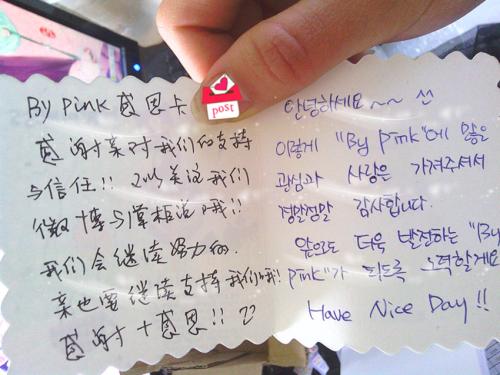 By Pink 感恩卡
感谢亲对我们的支持
与信任!! 可以关注我们
微博与掌柜说哦!!
我们会继续努力的.
亲也要继续支持我们哦!
感谢+感恩!!
post
안녕하세요~~ ^^
이렇게 "By Pink"에 많은
관심과 사랑은 가져주셔서
정말정말 감사합니다.
앞으로 더욱 발전하는 "By
Pink"가 되도록 노력할게요
Have Nice Day!!